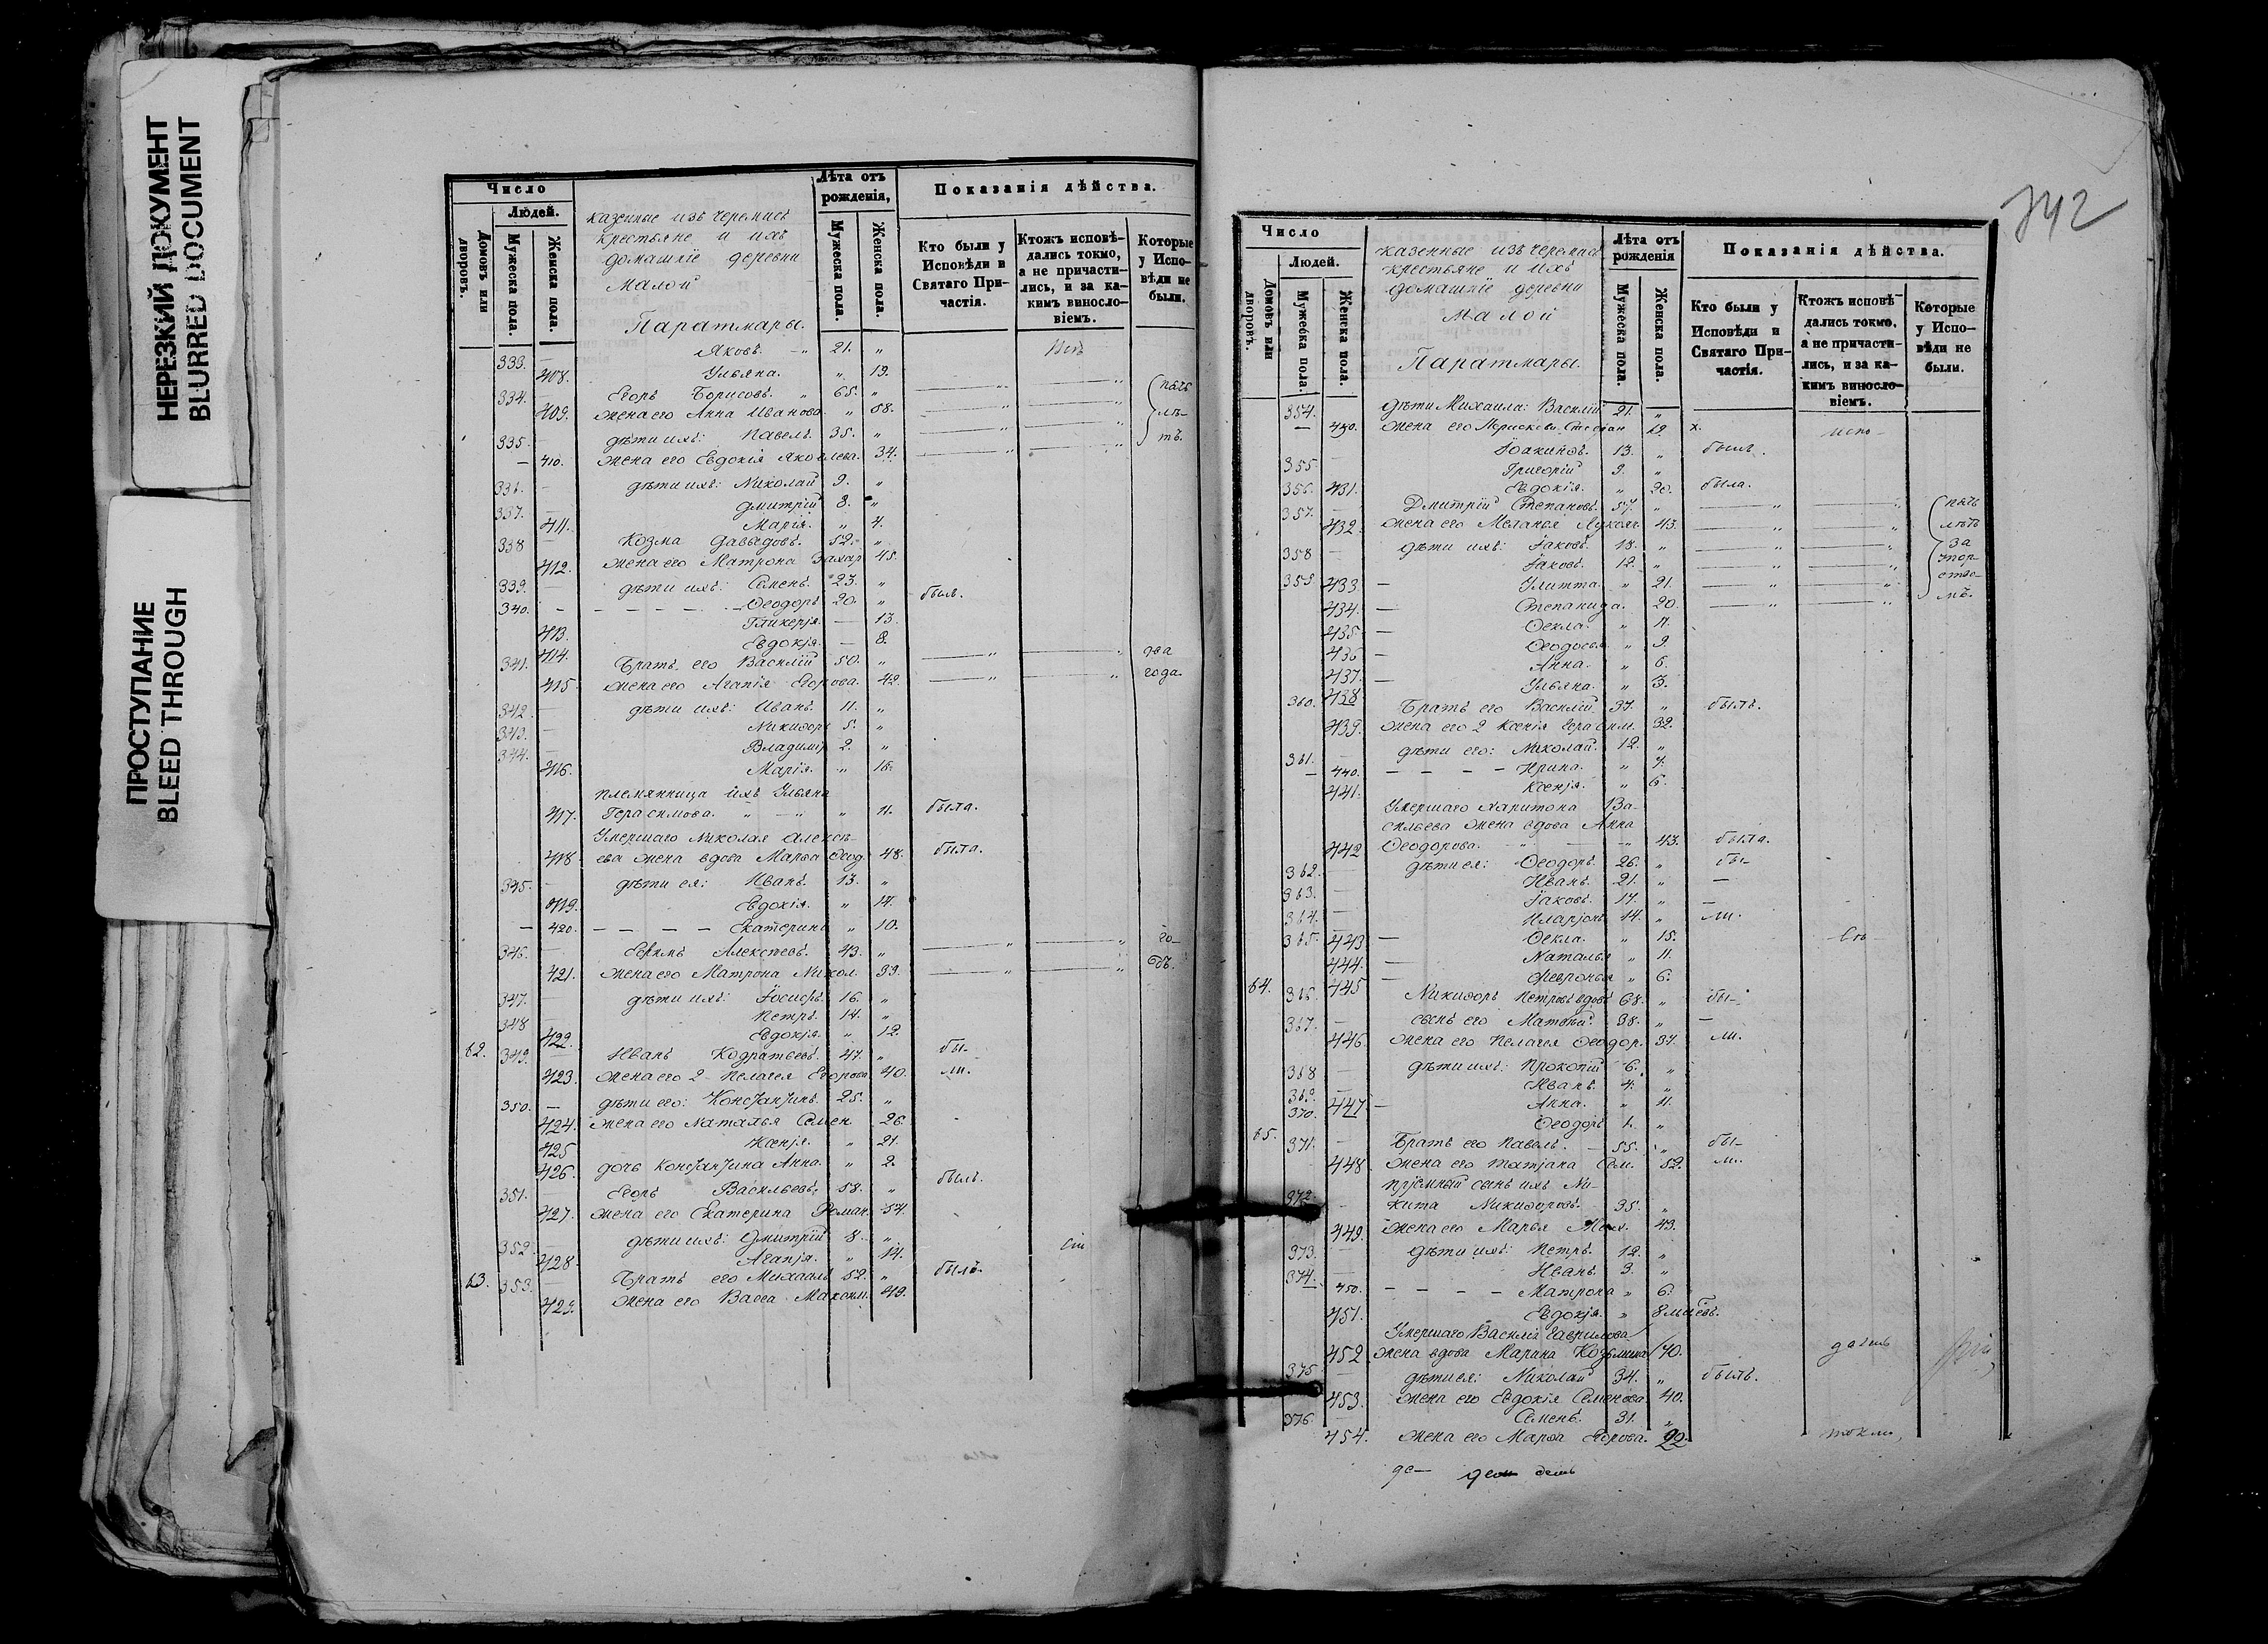 НЕРЕЗКИЙ ДОКУМЕНТ
BLURRED DOCUMENT
ПРОСТУПАНИЕ
BLEED THROUGH
Число
Людей.
Домовъ или дворовъ.
Мужеска пола.
Женска пола.
казенные изъ черемисъ
крестьяне и ихъ
домашніе деревни
Малой
Паратмары.
Лѣта отъ рожденія,
Мужеска пола.
Женска пола.
Показанія дѣйства.
Кто были у Исповѣди и Святаго Причастія.
Ктожъ исповѣдались токмо, а не причастились, и за какимъ винословіемъ.
Которые у Исповѣди не были.
333. — Яковъ. 21. „
408. Ульяна. „ 19.
334. — Егоръ Борисовъ. 65. „
409. жена его Анна Иванова. „ 58.
335. — дѣти ихъ: Павелъ. 35. „
— 410. жена его Евдокія Яковлева. 34.
336. — дѣти ихъ: Николай 9. „
337. — Дмитрій 8. „
411. Марія. „ 4.
338 — Козма Давыдовъ. 52. „
412. жена его Матрона Захар. 45.
339. — дѣти ихъ: Семенъ. 23. „
340. — Ѳеодоръ 20. „ былъ.
413. Гликерія. — 13.
414. Евдокія. — 8.
341. Братъ его Василій 50. „ два
415. жена его Агапія Егорова. 42. года.
342. — дѣти ихъ: Иванъ. 11. „
343. — Никифоръ 5. „
344. — Владиміръ 2. „
416. Марія. „ 16.
племянница ихъ Ульяна
417. Герасимова. „ — „ „ 11. была.
Умершаго Николая Алексѣ-
418. ева жена вдова Марѳа Ѳеод. 48. была.
345. — дѣти ея: Иванъ. 13. „
419. Евдокія. „ 17.
— 420. — — — — Екатерина „ 10.
346. — Ефимъ Алексѣевъ. 43. „ го-
421. жена его Матрона Никол. 39. дъ.
347. — дѣти ихъ: Іосифъ. 16. „
348 — Петръ. 14. „
422. Евдокія. „ 12.
62. 349. — Иванъ Кодратьевъ. 47. „ бы-
423. жена его 2 Пелагея Егорова 40. ли.
350. — дѣти его: Константинъ. 25. „
424. жена его Наталья Семен. 26.
425 Ксенія. „ 21.
426. дочь Константина Анна. „ 2.
351. — Егоръ Васильевъ. 58. „ былъ.
427. жена его Екатерина Роман. 54.
352. — дѣти ихъ: Дмитрій 8. „
428. Агапія. „ 14.
63. 353. — Братъ его Михаилъ 52. „ былъ.
429. жена его Васса Максим. 49.
342
Число
Людей.
Домовъ или дворовъ.
Мужеска пола.
Женска пола.
казенные изъ черемисъ
крестьяне и ихъ
домашніе деревни
Малой
Паратмары.
Лѣта отъ рожденія
Мужеска пола.
Женска пола.
Показанія дѣйства.
Кто были у Исповѣди и Святаго Причастія.
Ктожъ исповѣдались токмо, а не причастились, и за какимъ винословіемъ.
Которые у Исповѣди не были.
354. дѣти Михаила: Василій. 21. „
— 430. жена его Параскева Стефан. 19. х.
355 — Іоакимъ. 13. „ былъ.
356. Григорій 9. „
431. Евдокія. „ 20. была.
357. — Дмитрій Степановъ. 57. „
432. жена его Меланья Лукоян. 43.
358 — дѣти ихъ: Іаковъ. 18. „
359. Іаковъ. 12. „
433 — Улитта. „ 21.
434. — Степанида. 20.
435 — Ѳекла. „ 11.
436 — Ѳеодосья „ 9.
437. — Анна. „ 6.
438 — Ульяна. „ 3.
360. Братъ его Василій 37. „ былъ.
439. жена его 2 Ксенія Герасим. 32.
361. — дѣти его: Николай. 12. „
— 440. — — — — Ирина. „ 7.
441. Ксенія. „ 6.
Умершаго Харитона Ва-
сильева жена вдова Анна
442 Ѳеодорова. „ — „ 43. была.
362. — дѣти ея: Ѳеодоръ. 26. „ бы-
363. — Иванъ. 21. „ —
364. — Іаковъ. 17. „ —
365. Иларіонъ. 14. „ ли.
443 — Ѳекла. „ 15.
444. — Наталья „ 11.
445 — Февронья „ 6.
64. 366. Никифоръ Петровъ вдовъ 68. „ бы-
367. — сынъ его Матѳей. 38. „ —
446. жена его Пелагея Ѳеодор. 37. ли.
368 — дѣти ихъ: Прокопій 6. „
369. — Иванъ. 4. „
447. — Анна. „ 11.
370. Ѳеодоръ 1. „
65. 371. — Братъ его Павелъ. 55. „ бы-
448. жена его Татіана Сем. 52. ли.
пріемный сынъ ихъ Ни-
372. — кита Никифоровъ. 35. „
449. жена его Марья Мих. 43.
373. — дѣти ихъ: Петръ. 12. „
374. — Иванъ. 3. „
— 450. — — — — Матрона „ 6.
451. Евдокія. „ 8 мцевъ.
Умершаго Василія Гаврилова
452. жена вдова Марина Козьмина 70.
375 — дѣти ея: Николай 34. „ былъ.
453. жена его Евдокія Семенова. 40.
376. — Семенъ. 31. „
454. жена его Марѳа Егорова. 22